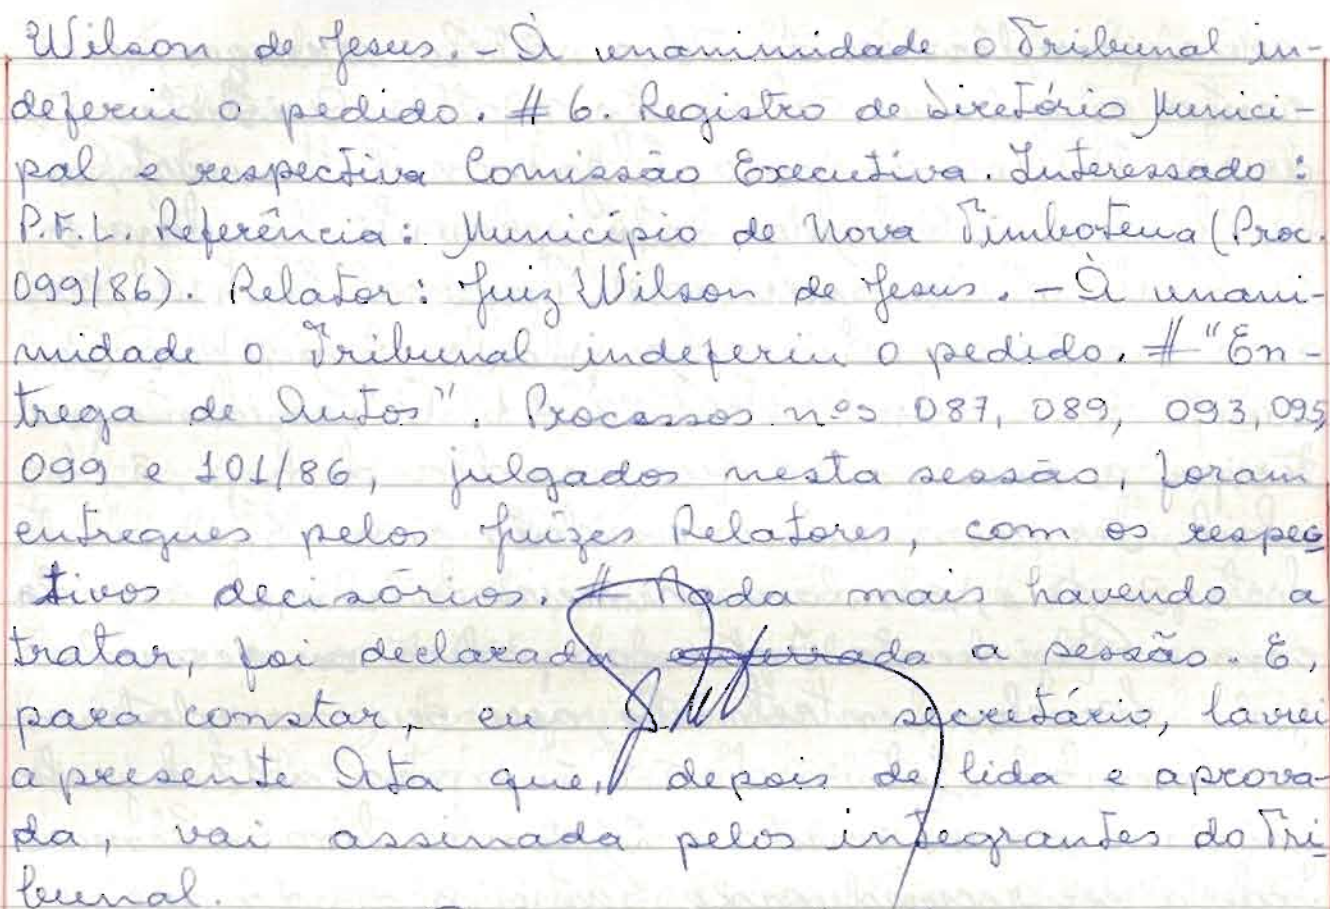 Wilson de Jesus. - À unanimidade o Tribunal in-
deferiu o pedido. # 6. Registro de Diretório Munici-
pal e respectiva Comissão Executiva. Interessado:
P.F.L. Referência: Município de Nova Timboteua (Proc.
099/86). Relator: Juiz Wilson de Jesus. - À unani-
midade o Tribunal indeferiu o pedido. # "En-
trega de Autos". Processos nºs 087, 089, 093, 095,
099 e 101/86, julgados nesta sessão, foram
entregues pelos Juízes Relatores, com os respec
tivos decisórios. # Nada mais havendo a
tratar, foi declarada a sessão. E,
para constar, eu secretário, lavrei
a presente Ata que, depois de lida e aprova-
da, vai assinada pelos integrantes do Tri
bunal.